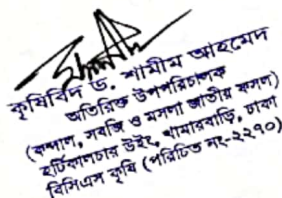 কৃষিবিদ ড. শামীম আহমেদ
অতিরিক্ত উপপরিচালক
(কন্দাল, সবজি ও মসলা জাতীয় ফসল)
হর্টিকালচার উইং, খামারবাড়ি, ঢাকা
বিসিএস কৃষি (পরিচিতি নং-২২৭০)